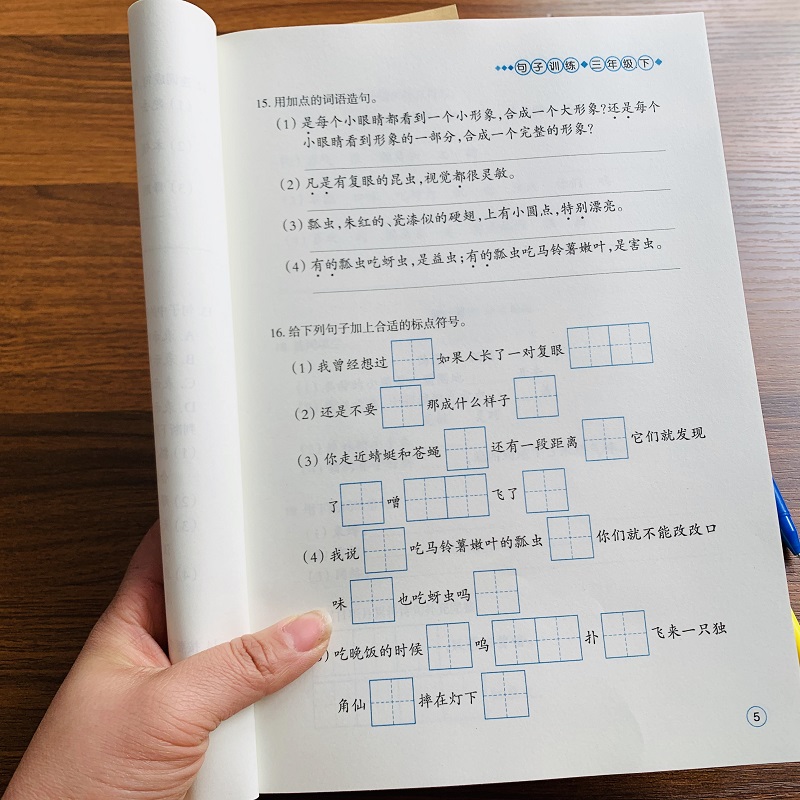 句子训练 三年级下
15. 用加点的词语造句。
(1) 是每个小眼睛都看到一个小形象,合成一个大形象?还是每个
小眼睛看到形象的一部分,合成一个完整的形象?
(2) 凡是有复眼的昆虫,视觉都很灵敏。
(3) 瓢虫,朱红的、瓷漆似的硬翅,上有小圆点,特别漂亮。
(4) 有的瓢虫吃蚜虫,是益虫;有的瓢虫吃马铃薯嫩叶,是害虫。
16. 给下列句子加上合适的标点符号。
(1) 我曾经想过 如果人长了一对复眼
(2) 还是不要 那成什么样子
(3) 你走近蜻蜓和苍蝇 还有一段距离 它们就发现
了 噌 飞了
(4) 我说 吃马铃薯嫩叶的瓢虫 你们就不能改改口
味 也吃蚜虫吗
) 吃晚饭的时候 呜 扑 飞来一只独
角仙 摔在灯下
5